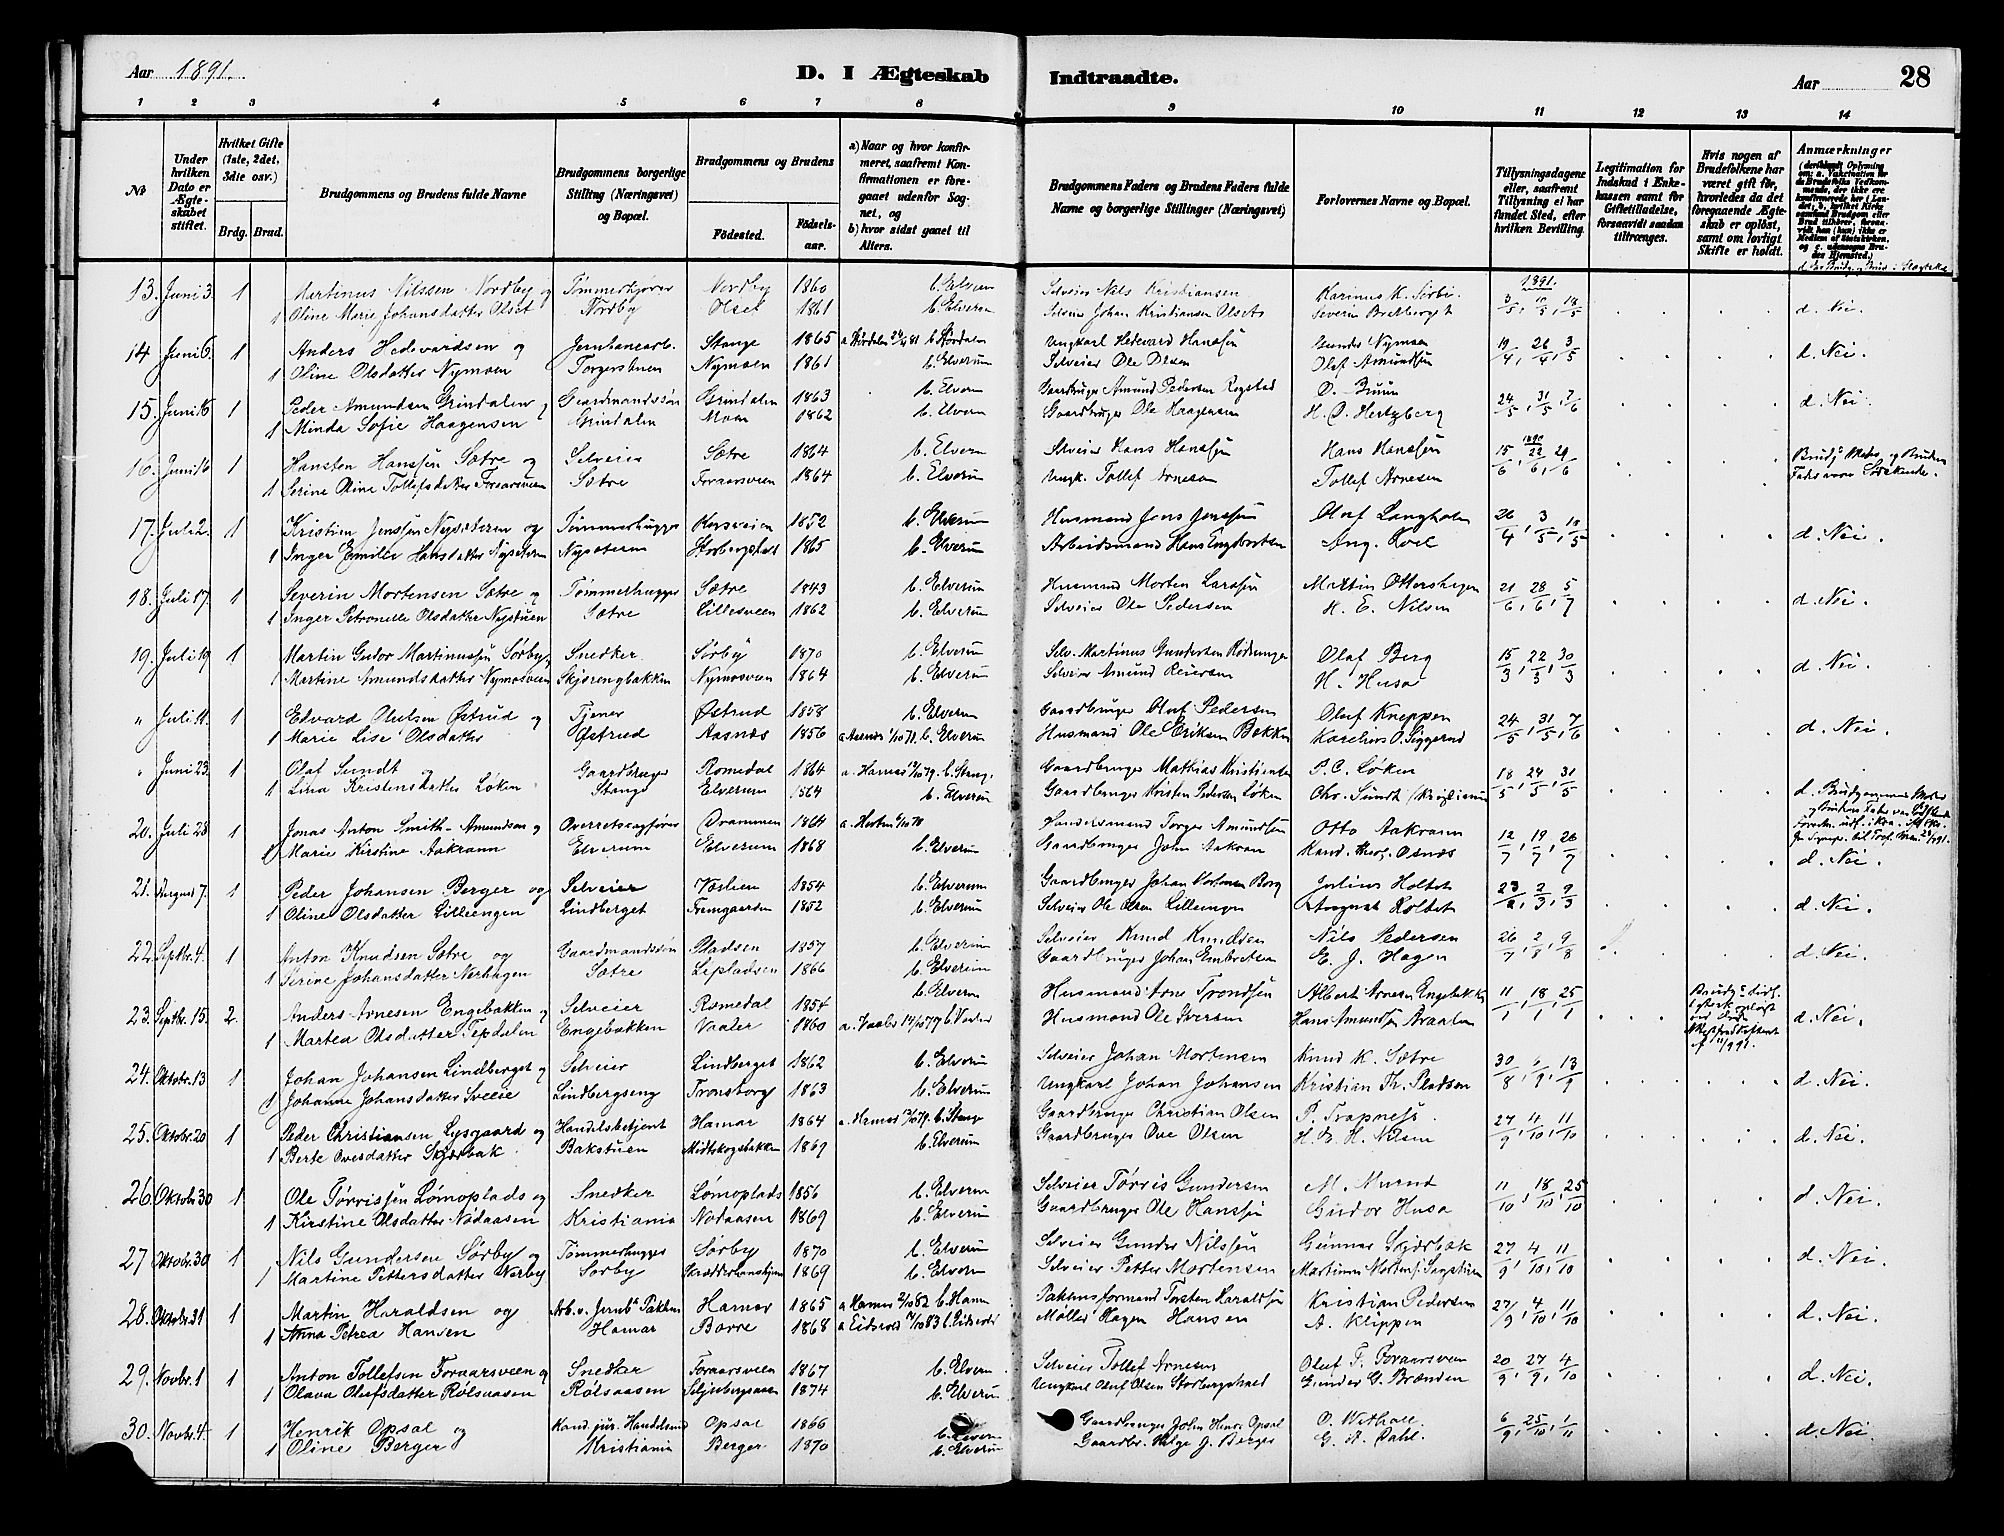 Aar 1891.
D. I Ægteskab Indtraadte.
Aar 28
1 2 3 4 5 6 7 8 9 10 11 12 13 14
No
Under hvilken Dato er Ægteskabet stiftet.
Hvilket Gifte (1ste, 2det, 3die osv.)
Brdg. Brud.
Brudgommens og Brudens fulde Navne
Brudgommens borgerlige Stilling (Næringsvei) og Bopæl.
Brudgommens og Brudens
Fødested.
Fødselsaar.
a) Naar og hvor konfirmeret, saafremt Konfirmationen er foregaaet udenfor Sognet, og
b) hvor sidst gaaet til Alters.
Brudgommens Faders og Brudens Faders fulde Navne og borgerlige Stillinger (Næringsvei)
Forlovernes Navne og Bopæl.
Tillysningsdagene eller, saafremt Tillysning ei har fundet Sted, efter hvilken Bevilling.
Legitimation for Indskud i Enkekassen samt for Giftetilladelse, forsaavidt saadan tiltrænges.
Hvis nogen af Brudefolkene har været gift før, hvorledes da det foregaaende Ægteskab er opløst, samt om lovligt Skifte er holdt.
Anmærkninger
13. Juni 3. 1 Martinus Nilssen Nordby og Tømmerkjører Nordby 1860 b. Elverum Selveier Nils Kristiansen Karinus K. Sørbi. 1891. 3/5, 10/5, 18/5 d. Nei.
1 Oline Marie Johansdatter Olset Nordby Olset 1861 b. Elverum Selveier Johan Kristiansen Olset Severin Brekberget
14 Juni 6. 1 Anders Hedevardsen og Jernbanearb. Stange 1865 Ungkarl Hedevard Hanssøn Gunder Nymoen 19/4, 26/4, 3/5 d. Nei.
1 Oline Olsdatter Nymoen Torgerstuen Nymoen 1861 b. Elverum Selveier Ole Olsen Olaf Amundsøn
15. Juni 16 1 Peder Amundsen Grindalen og Gaardmandssøn Grindalen 1863 b. Elverum Gaardbruger Amund Pedersen Rogstad O. Bruun 24/5, 31/5, 7/6 d. Nei.
1 Minda Sofie Haagensen Grindalen Moen 1862 b. Elverum Gaardbruger Ole Haagensen H. O. Hertzberg
16. Juni 16 1 Hansten Hanssøn Sætre og Selveier Sætre 1864 b. Elverum Selveier Hans Hanssøn Hans Hanssøn 15/6, 1890 22/6, 29/6
1 Serine Oline Tollefsdatter Foraarsveen Sætre Foraarsveen 1864 b. Elverum Ungk. Tollef Arnesen Tollef Arnesen
17. Juli 2. 1 Kristian Jenssøn Nysæteren og Tømmerhugger 1852 b. Elverum Husmand Jens Jenssøn Olaf Langholm 26/4, 3/5, 10/5 d. Nei.
1 Inger Emilie Hansdatter Nysæteren Nysæteren Storbergshaet 1865 b. Elverum Arbeidsmand Hans Engebretsen
18. Juli 17. 1 Severin Mortensen Sætre og Tømmerhugger Sætre 1843 b. Elverum Husmand Morten Larssøn Martin Ottershagen 21/6, 28/6, 5/7 d. Nei.
1 Inger Petronelle Olsdatter Nystuen Sætre Lillesveen 1862 b. Elverum Selveier Ole Pedersen H. E. Nilsen
19. Juli 19 1 Martin Gudor Martinussøn Sørby Snedker Sørby 1870 b. Elverum Selv. Martinus Gundersen Olaf Berg 15/3, 22/3, 30/3 d. Nei.
1 Martine Amundsdatter Nymosveen Skjærengbakken Nymosveen 1864 b. Elverum Selveier Amund Reiersen H. Husa
" Juli 11. 1 Edvard Olufsen Østrud og Tjener Østrud 1858 b. Elverum Gaardbruger Oluf Pedersen Oluf Kneppen 24/5, 31/5, 7/6 d. Nei.
1 Marie Lise Olsdatter Østrud Aasnæs 1856 b. Elverum Husmand Ole Eriksen Bakken Karelius O. Siggerud
" Juni 23. 1 Olaf Sundt og Gaardbruger Romedal 1864 a. Hamar b. Stange Gaardbruger Mathias Kristiansen P. C. Løken 18/5, 24/5, 31/5
1 Lina Kristensdatter Løken Stange Elverum 1864 b. Elverum Gaardbruger Kristen Pedersen Løken Chr. Sundt
20. Juli 28 1 Jonas Anton Smith-Amundsen og Overretssagfører Drammen 1864 Torger Amundsøn Otto Aakrann 12/7, 19/7, 26/7
1 Marie Kirstine Aakrann Elverum Elverum 1868 b. Elverum Gaardbruger John Aakran Kand. theol. Osnæs d. Nei.
21. August 7. 1 Peder Johansen Berger og Selveier 1854 b. Elverum Gaardbruger Johan Julius Holtet 23/2, 2/3, 9/3 d. Nei.
1 Oline Olsdatter Lilleengen Lindberget 1852 b. Elverum Selveier Ole Olsen Lilleengen August Holtet
22. Septbr. 4. 1 Anton Knudsen Sætre og Gaardmandssøn Pladsen 1857 b. Elverum Selveier Knud Knudsen Nils Pedersen 26/7, 2/8, 9/8 d. Nei.
1 Serine Johansdatter Nerhagen Sætre Lepladsen 1866 b. Elverum Gaardbruger Johan Embretsen E. J. Hagen
23. Septbr. 15. 2. Anders Arnesen Engebakken og Selveier Romedal 1854 b. Elverum Husmand Arne Trondsøn Albert Arnesen Engebakken 11/1, 18/1, 25/1 d. Nei.
1 Martea Olsdatter Tepdalen Engebakken Vaaler 1860 a. Vaaler 14/10 77 b. Vaaler Husmand Ole Iversen Hans Amundsøn Araalen
24. Oktobr. 13 1 Johan Johansen Lindberget og Selveier Lindberget 1862 b. Elverum Selveier Johan Mortensen Knud K. Sætre 30/8, 6/9, 13/9 d. Nei.
1 Johanne Johansdatter Sveeie Lindbergseng Tronsborg 1863 b. Elverum Ungkarl Johan Johansen Kristian Th. Pladsen
25. Oktobr. 20 1 Peder Christiansen Lysgaard og Handelsbetjent Hamar 1864 b. Stange Gaardbruger Christian Olsen P. Trapness. 27/9, 4/10, 11/10 d. Nei.
1 Berte Ovesdatter Skjærbak Bakstuen Midtskogsbakken 1869 b. Elverum Gaardbruger Ove Olsen H. B. H. Nilsen
26. Oktobr 30 1 Ole Tørrissøn Lømoplads og Snedker Lømoplads 1856 b. Elverum Selveier Tørris Gundersen M. Murud 11/10, 18/10, 25/10 d. Nei.
1 Kirstine Olsdatter Nodaasen Kristiania Nodaasen 1869 b. Elverum Gaardbruger Ole Hanssøn Gudor Husa
27 Oktobr. 30 1 Nils Gundersen Sørby og Tømmerhugger Sørby 1870 b. Elverum Selveier Gunder Nilssøn Gunnar Skjærbæk 27/9, 4/10, 11/10 d. Nei.
1 Martine Pettersdatter Nerby Sørby 1869 b. Elverum Selveier Petter Mortensen
28. Oktobr. 31 1 Martin Haraldsen og Hamar 1865 b. Hamar Torsten Haraldsøn Kristian Pedersen 27/9, 4/10, 11/10 d. Nei.
1 Anna Petrea Hansen Hamar Borre 1868 b. Eidsvold Møller Hagen Hansen A. Klippen
29. Novbr. 1 1 Anton Tollefsen Foraarsveen og Snedker Foraarsveen 1867 b. Elverum Selveier Tollef Arnesen Oluf F. Foraarsveen 20/9, 27/9, 4/10 d. Nei.
1 Olava Olufsdatter Rølsaasen Rølsaasen 1874 b. Elverum Ungkarl Oluf Olsen Gunder G. Brænden
30. Novbr. 4. 1 Henrik Opsal og Kand. jur. Opsal 1866 b. Elverum Gaardbruger John Opsal O. Wethal. 6/9, 25/10, 1/11 d. Nei.
1 Oline Berger Kristiania Berger 1870 b. Elverum Gaardbr. Helge J. Berger G. A. Dahl.